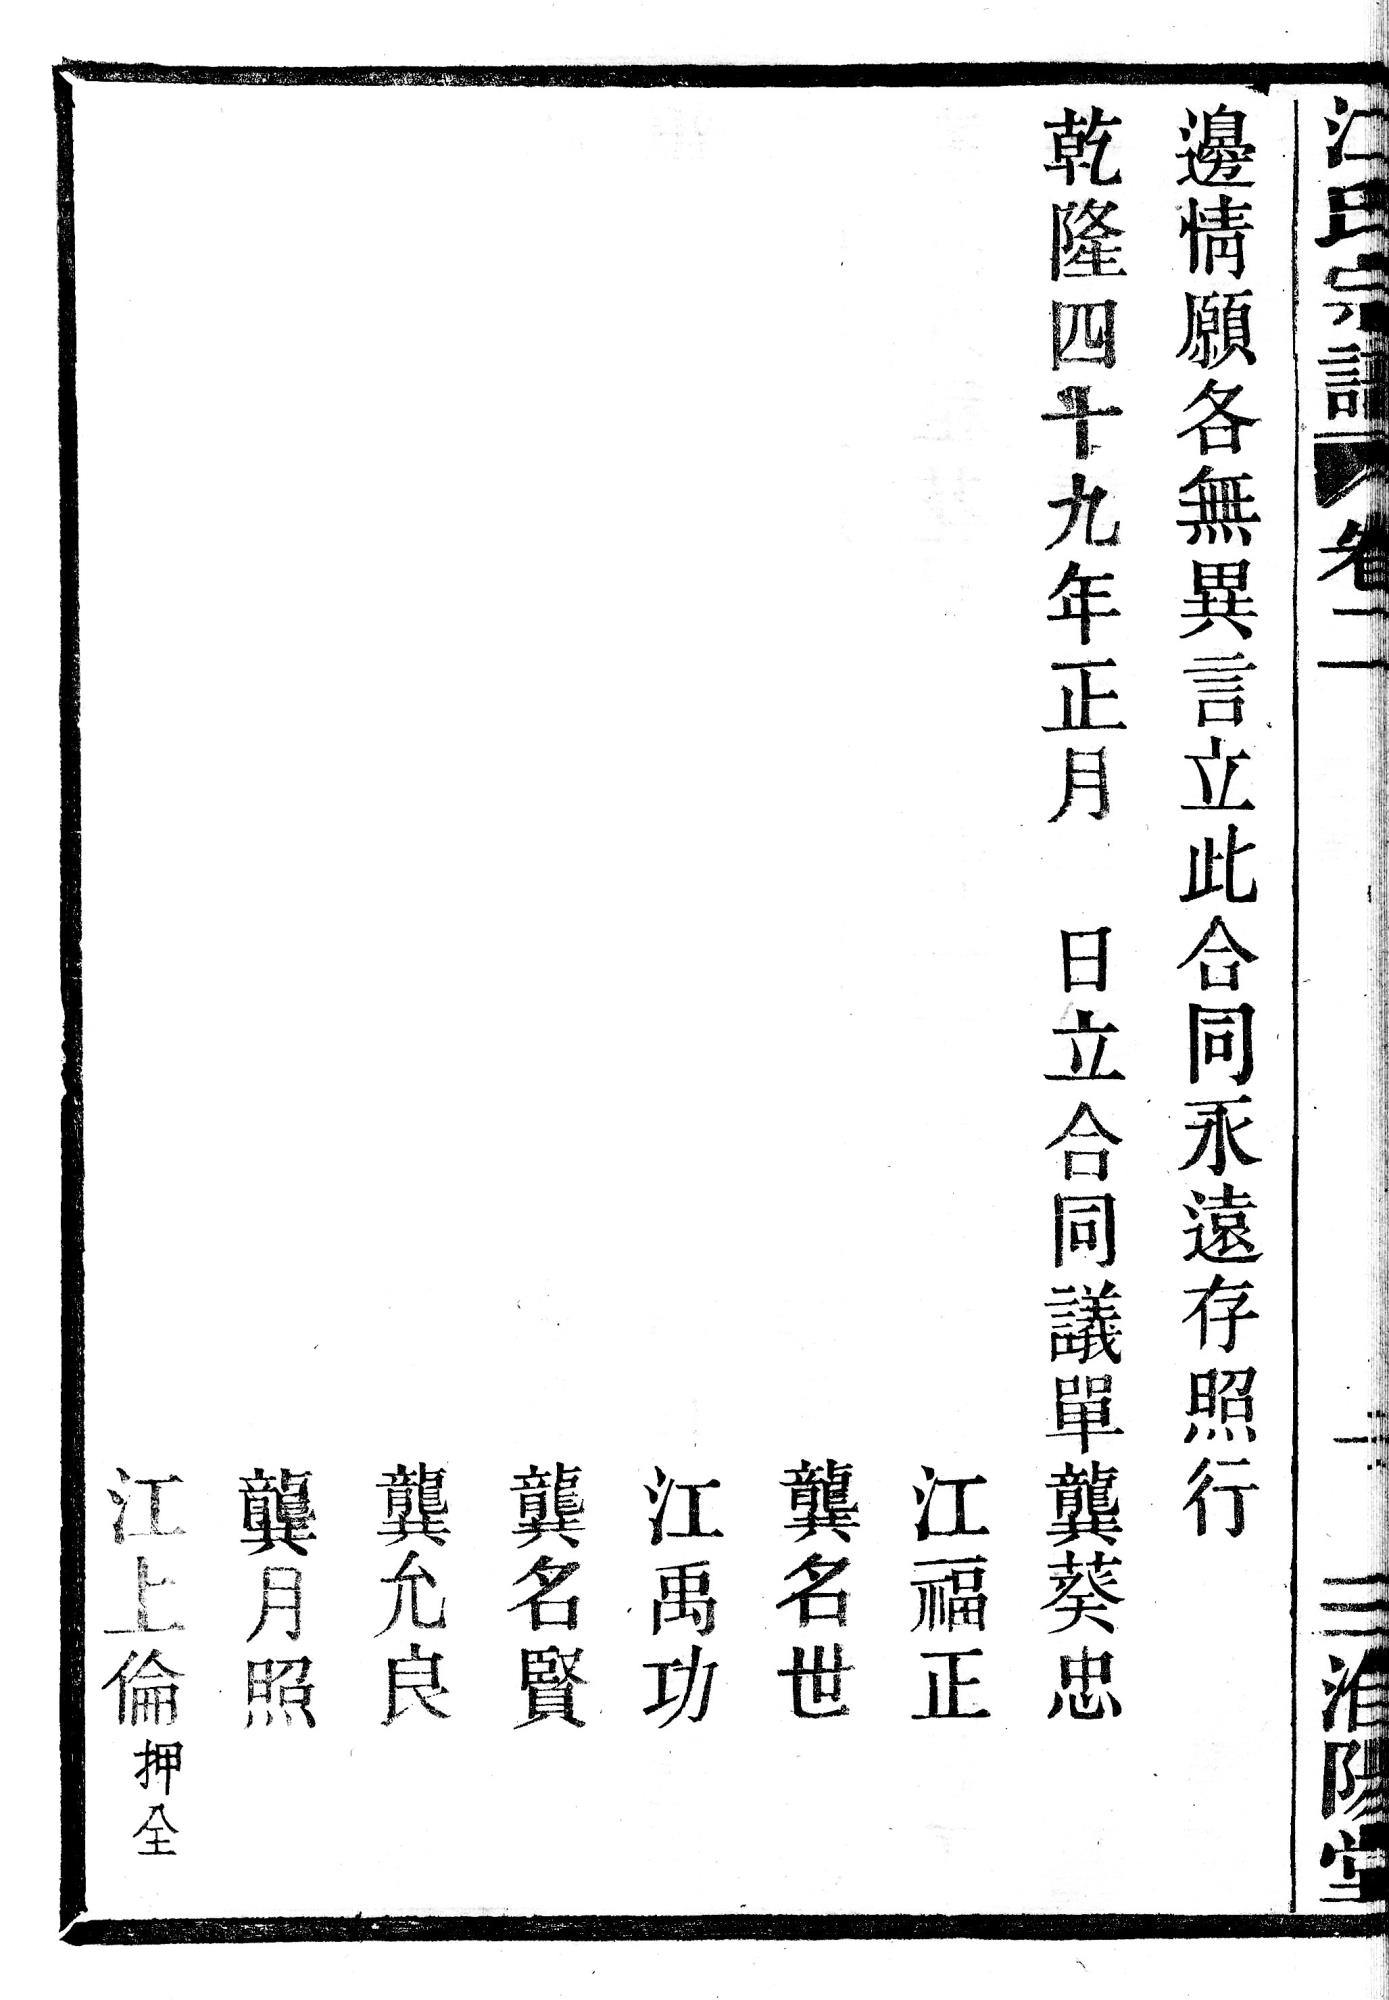 江氏宗譜 卷二 三 淮陽堂
邊情願各無異言立此合同永遠存照行
乾隆四十九年正月 日立合同議單龔葵忠
江福正
龔名世
江禹功
龔名賢
龔允良
龔月照
江上倫押全